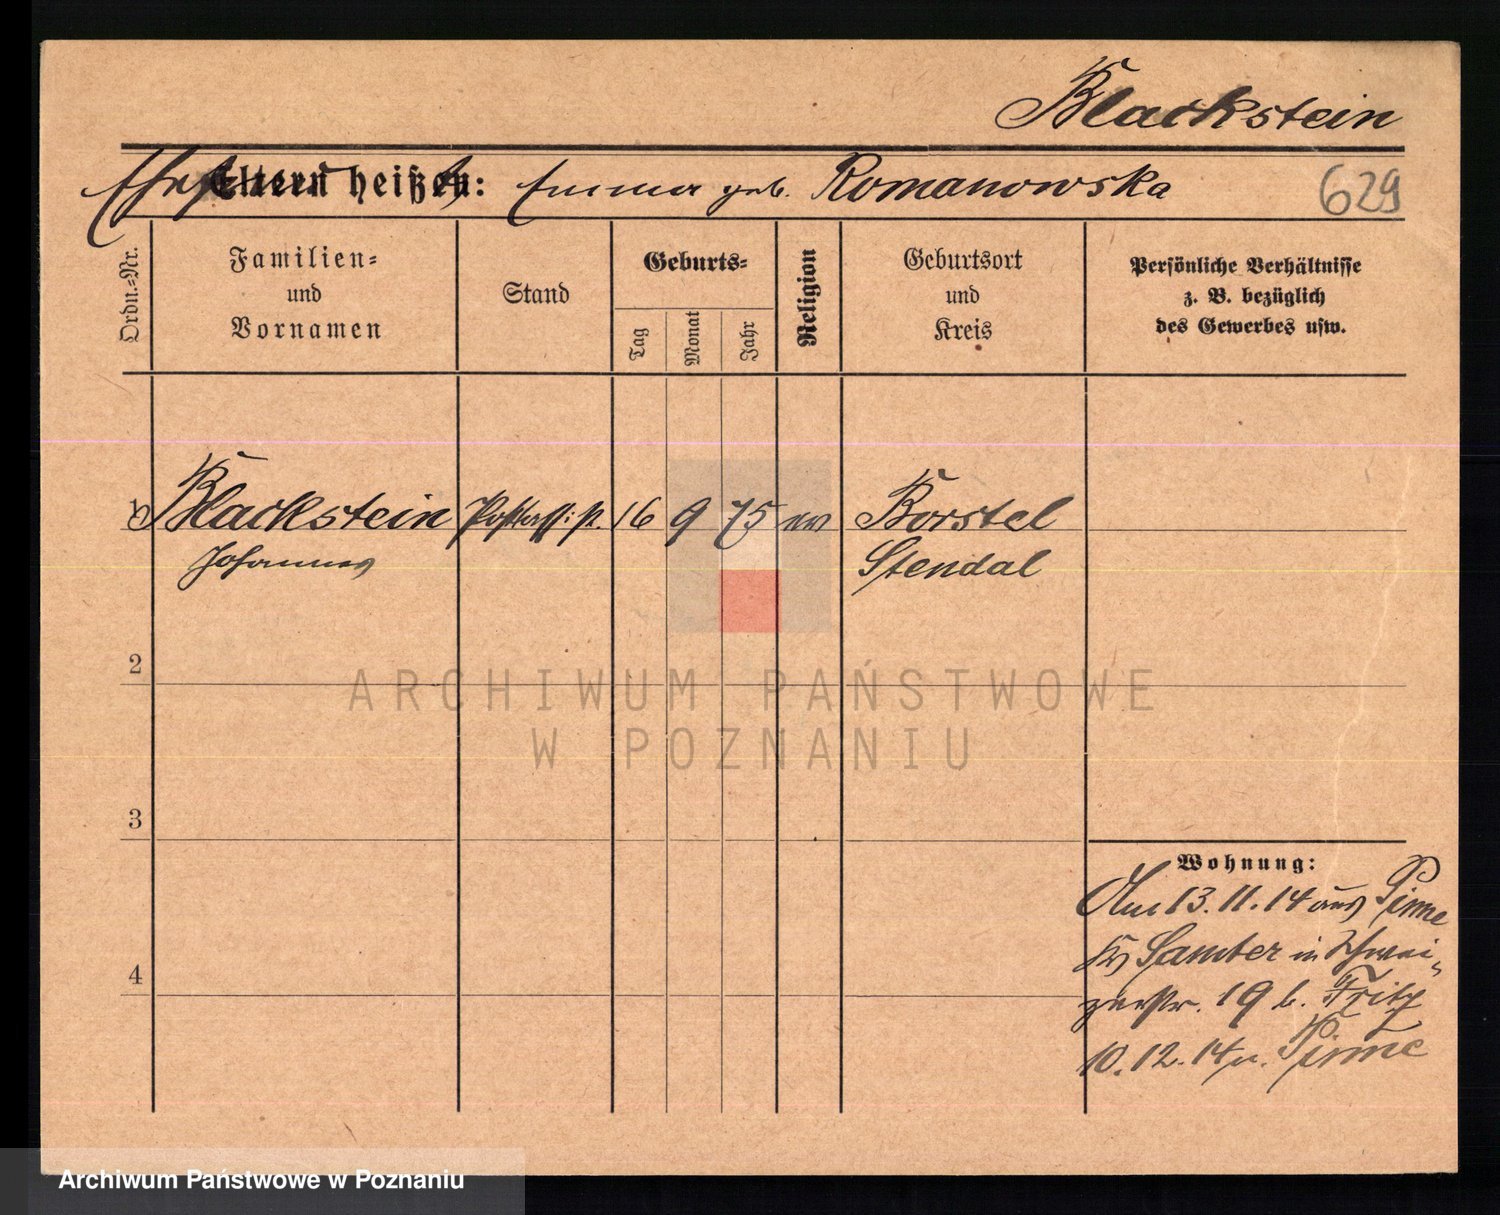 Blackstein
Ehefr. Eltern heißen: Emma geb. Romanowska 629
Ordn.-Nr.
Familien-
und
Vornamen
Stand
Geburts-
Tag
Monat
Jahr
Religion
Geburtsort
und
Kreis
Persönliche Verhältnisse
z. B. bezüglich
des Gewerbes usw.
1 Blackstein Postass: p. 16 9 75 ev Borstel
Johannes Stendal
2
3
4
Wohnung:
Am 13.11.14 aus Pinne
Kr Samter in Schwei-
zerstr. 19 b. Fritz
10.12.14 n. Pinne
ARCHIWUM PAŃSTWOWE
W POZNANIU
Archiwum Państwowe w Poznaniu